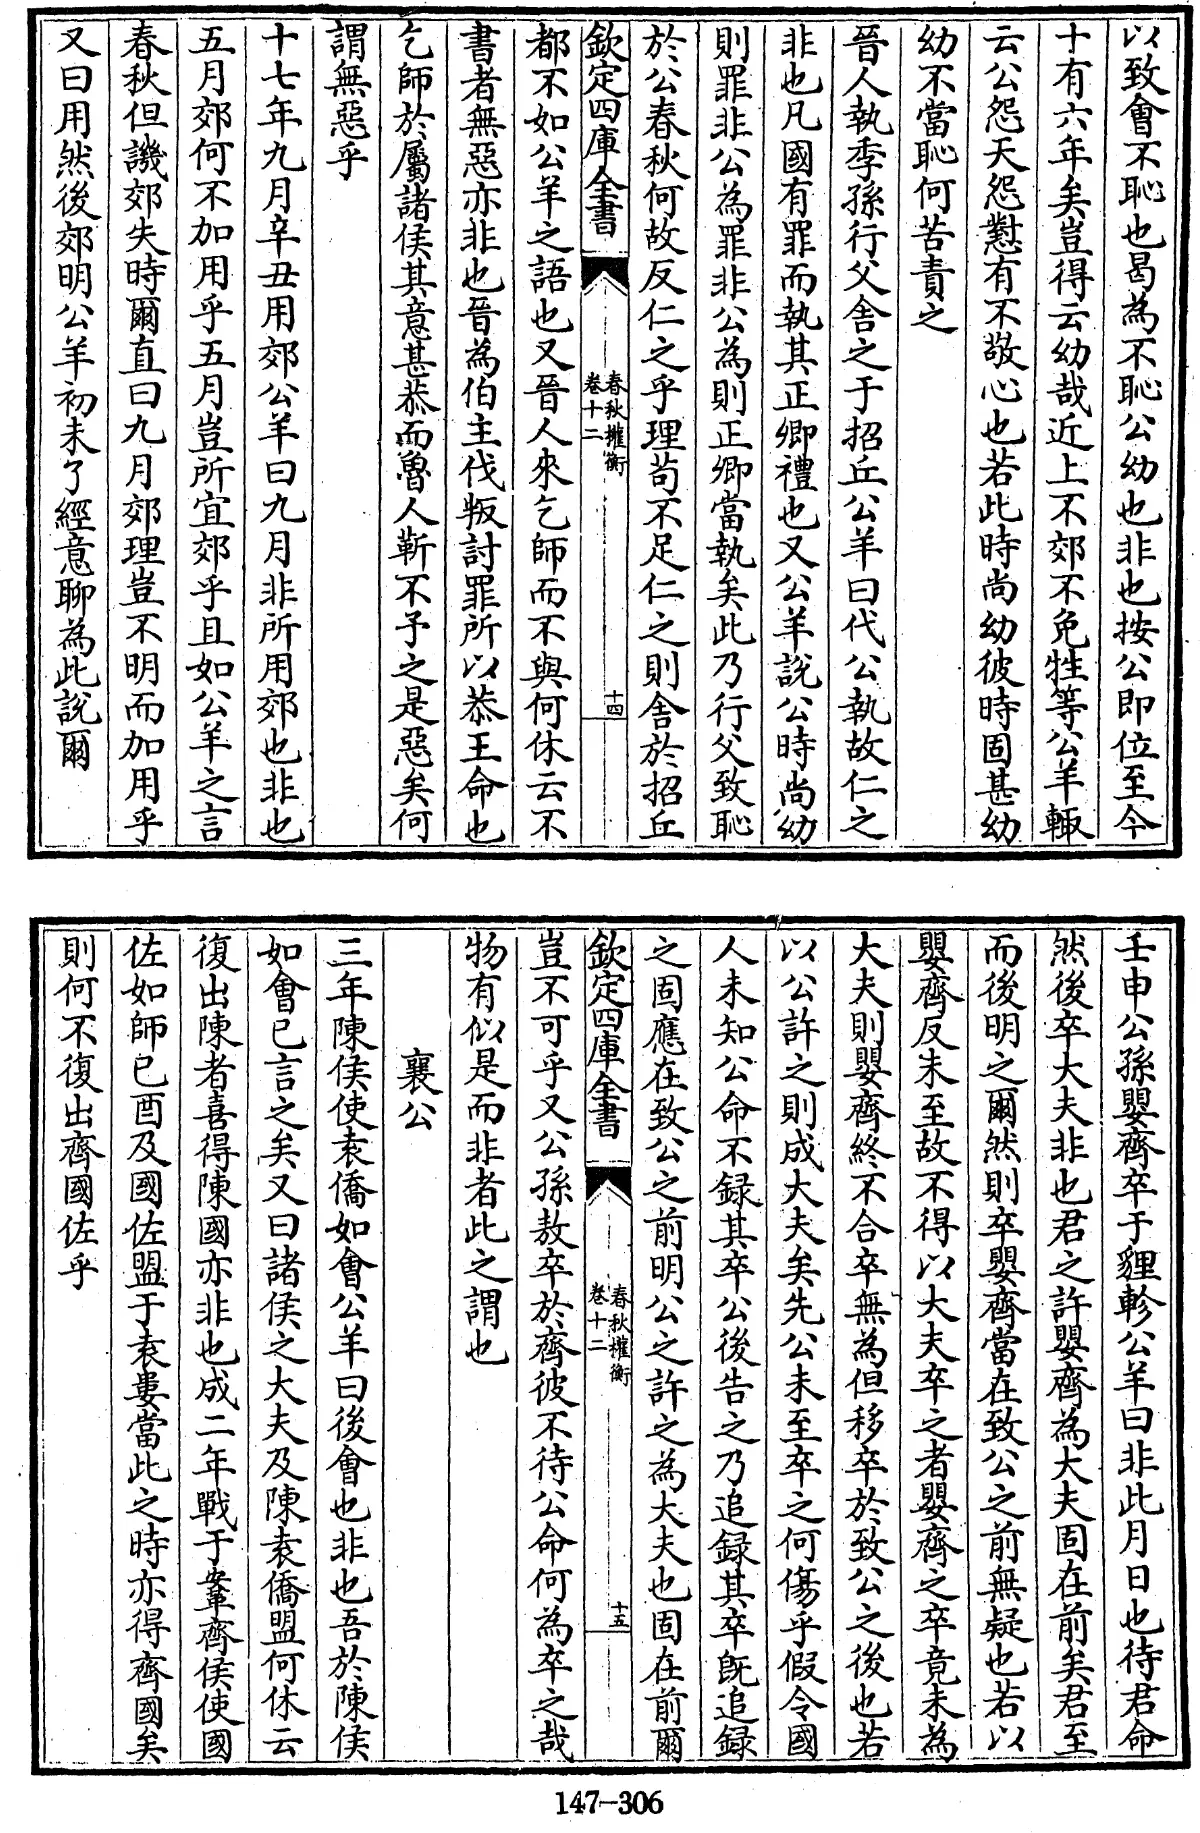 以致會不恥也曷為不恥公幼也非也按公即位至今
十有六年矣豈得云幼哉近上不郊不免牲等公羊輙
云公怨天怨懟有不敬心也若此時尚幼彼時固甚幼
幼不當恥何苦責之
晉人執季孫行父舍之于招丘公羊曰代公執故仁之
非也凡國有罪而執其正卿禮也又公羊說公時尚幼
則罪非公為罪非公為則正卿當執矣此乃行父致恥
於公春秋何故反仁之乎理苟不足仁之則舍於招丘
欽定四庫全書
春秋權衡
卷十二
十四
都不如公羊之語也又晉人來乞師而不與何休云不
書者無惡亦非也晉為伯主伐叛討罪所以恭王命也
乞師於屬諸侯其意甚恭而魯人靳不予之是惡矣何
謂無惡乎
十七年九月辛丑用郊公羊曰九月非所用郊也非也
五月郊何不加用乎五月豈所宜郊乎且如公羊之言
春秋但譏郊失時爾直曰九月郊理豈不明而加用乎
又曰用然後郊明公羊初未了經意聊為此說爾
壬申公孫嬰齊卒于貍軫公羊曰非此月日也待君命
然後卒大夫非也君之許嬰齊為大夫固在前矣君至
而後明之爾然則卒嬰齊當在致公之前無疑也若以
嬰齊反未至故不得以大夫卒之者嬰齊之卒竟未為
大夫則嬰齊終不合卒無為但移卒於致公之後也若
以公許之則成大夫矣先公未至卒之何傷乎假令國
人未知公命不録其卒公後告之乃追録其卒既追録
之固應在致公之前明公之許之為大夫也固在前爾
欽定四庫全書
春秋權衡
卷十二
十五
豈不可乎又公孫敖卒於齊彼不待公命何為卒之哉
物有似是而非者此之謂也
襄公
三年陳侯使袁僑如會公羊曰後會也非也吾於陳侯
如會已言之矣又曰諸侯之大夫及陳袁僑盟何休云
復出陳者喜得陳國亦非也成二年戰于鞌齊侯使國
佐如師已酉及國佐盟于袁婁當此之時亦得齊國矣
則何不復出齊國佐乎
147-306